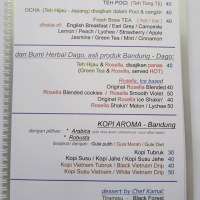 TEH POCI (Teh Tong Tji) 40
OCHA (Teh Hijau - Jepang) disajikan dalam Poci & cangkir 40
Fresh Brew TEA (hot / ice) 40
choice of: English Breakfast / Earl Grey / Camomile
Lemon / Peach / Lychee / Strawberry / Apple
Jasmine / Green Tea / Mint / Cinnamon
dari Bumi Herbal Dago, asli produk Bandung - Dago:
Teh Hijau & Rosella, disajikan panas 40
(Green Tea & Rosella, served HOT)
Rosella, Ice based
Original Rosella Blended 40
Rosella Blended cookies / Rosella Smooth Velvet 50
Original Rosella Ice Shakin' 40
Rosella Shakin' Melon / Lychee 50
KOPI AROMA - Bandung
dengan pilihan: * Arabica
* Robusta
disajikan dengan Gula putih / Gula Merah / Gule Diet
Kopi Tubruk 30
Kopi Susu / Kopi Jahe / Kopi Susu Jahe 40
Kopi Vietnam Tubruk / Black Vietnam Drip 40
Kopi Susu Vietnam / White Vietnam Drip 50
dessert by Chef Kamal:
Tiramisu - Black Forest